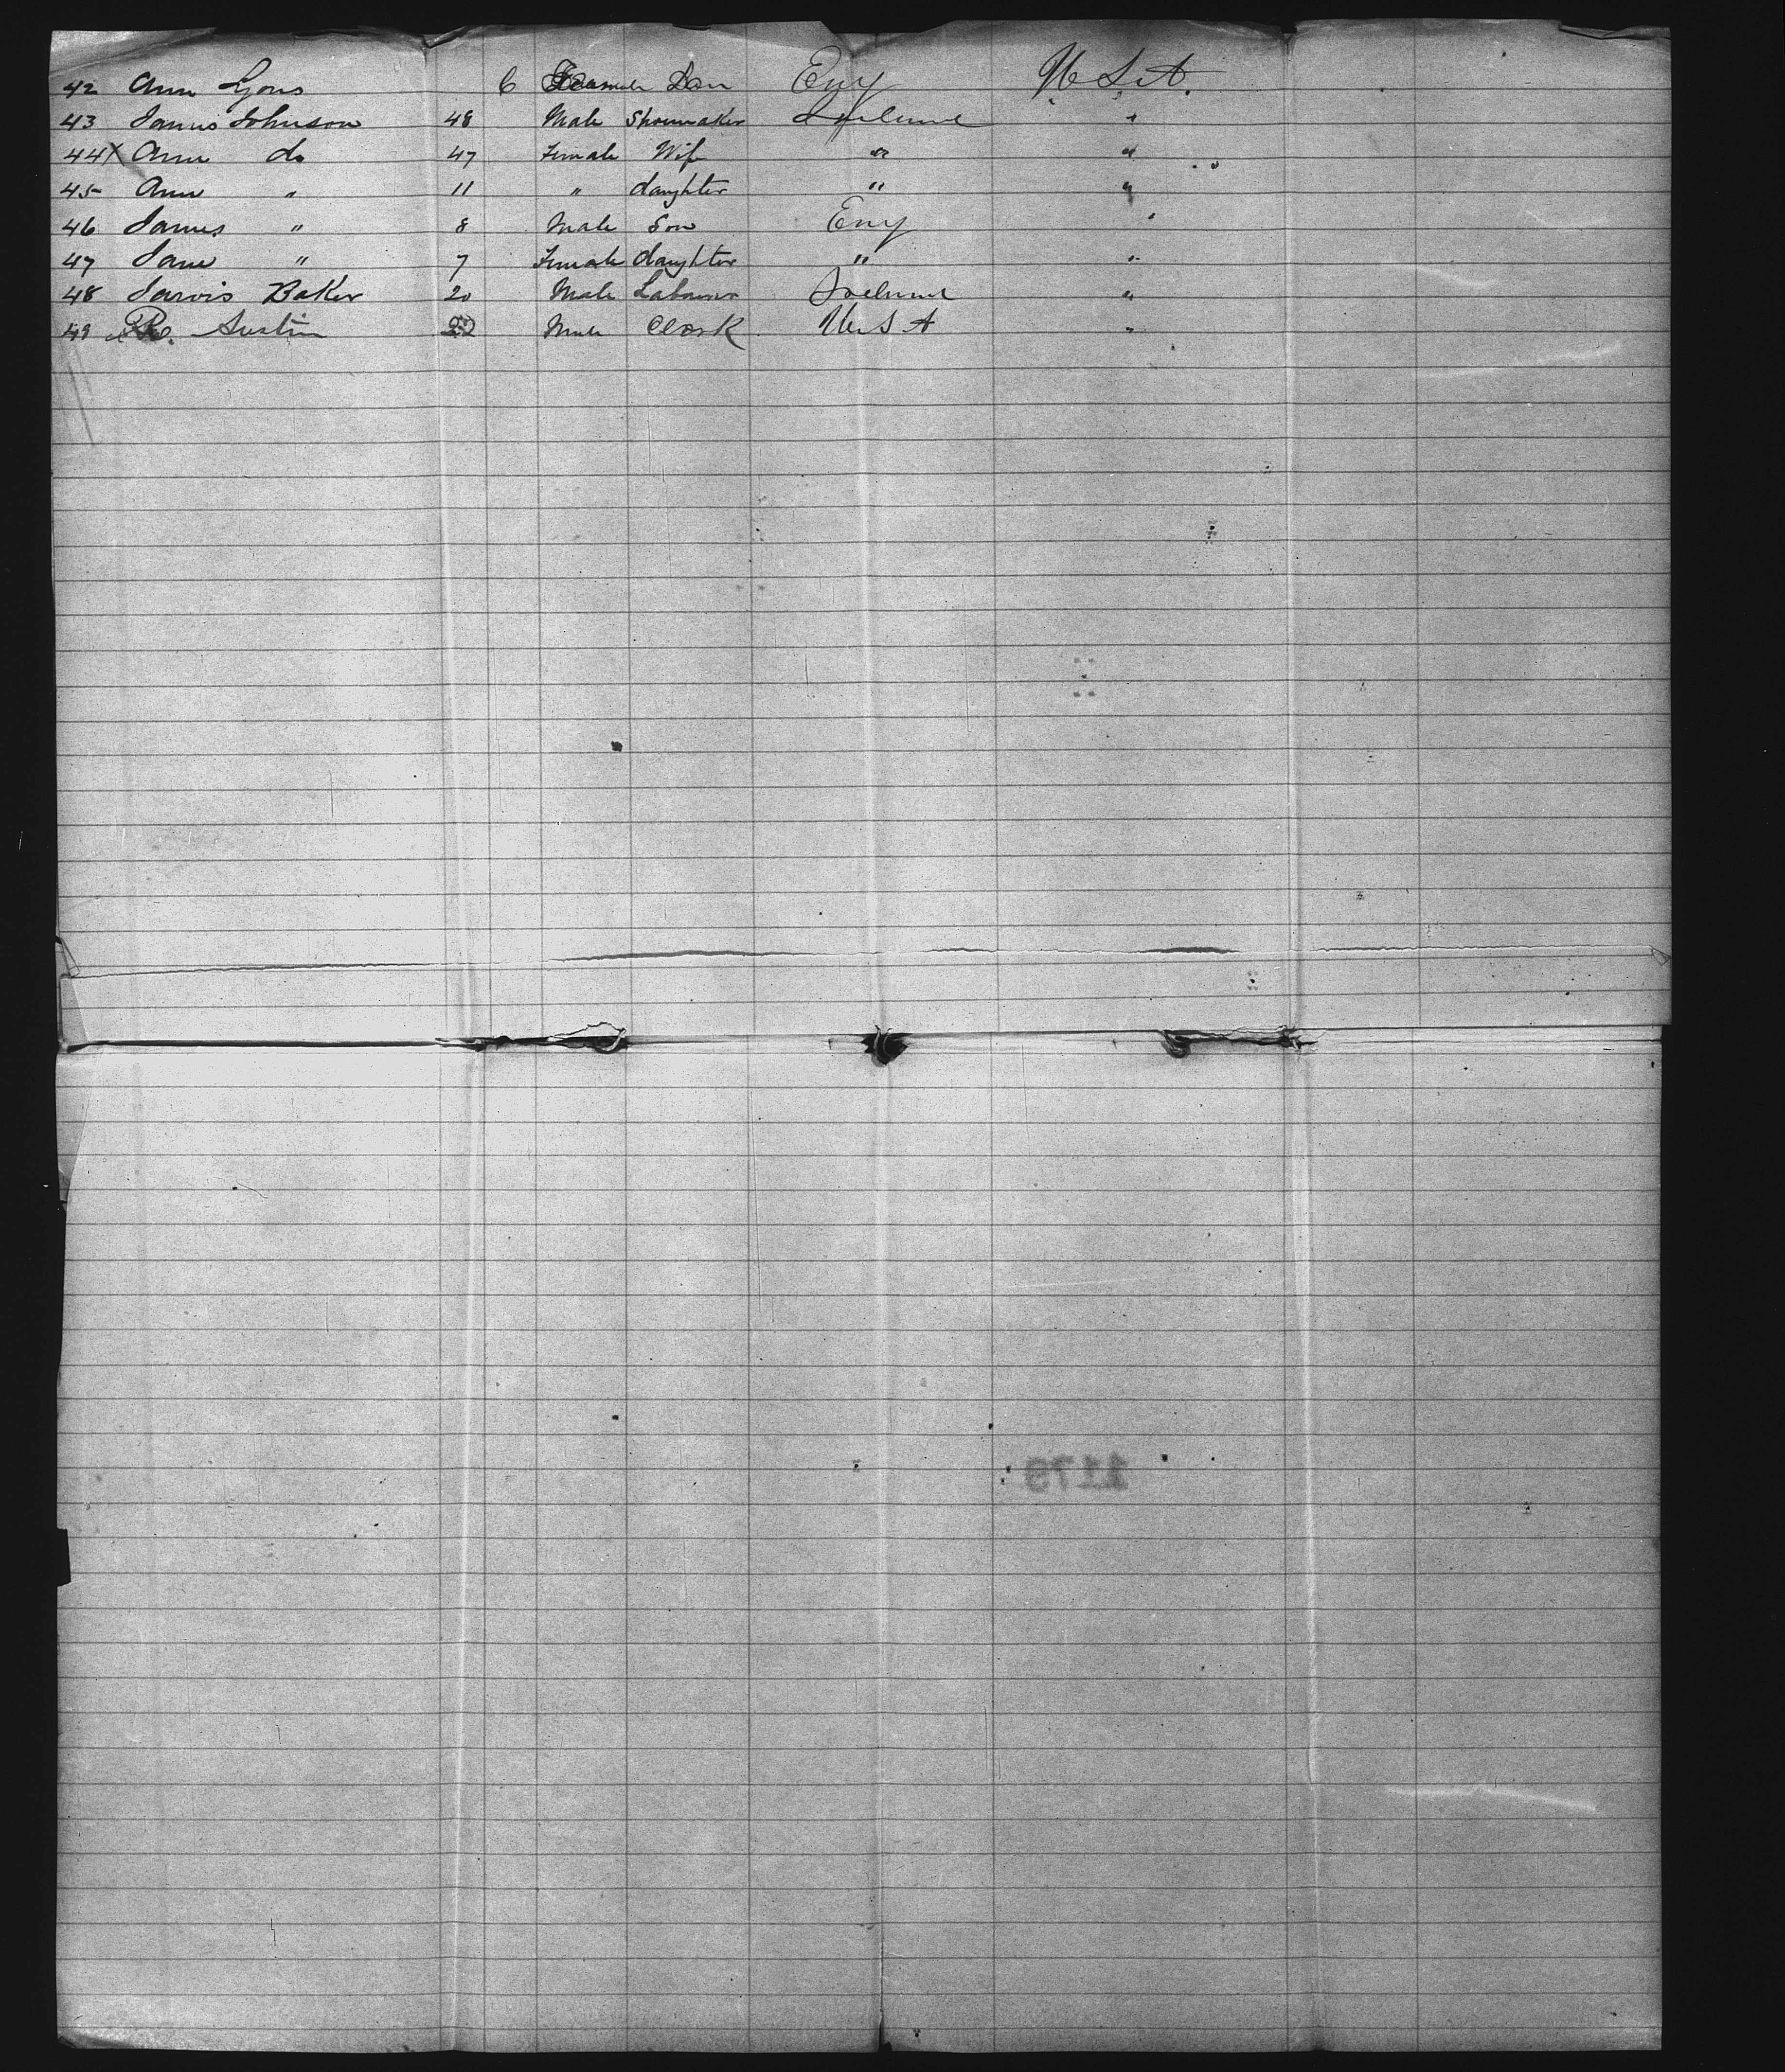 42 Ann Lyons 6 Female Son Eng U.S.A.
43 James Johnson 48 Male Shoemaker Ireland "
44 X Ann do 47 Female Wife " "
45 Ann " 11 " daughter " "
46 James " 8 Male Son Eng "
47 Jane " 7 Female daughter " "
48 Jarvis Baker 20 Male Labourer Ireland "
49 R. Austin 22 Male Clark U.S.A "
1179